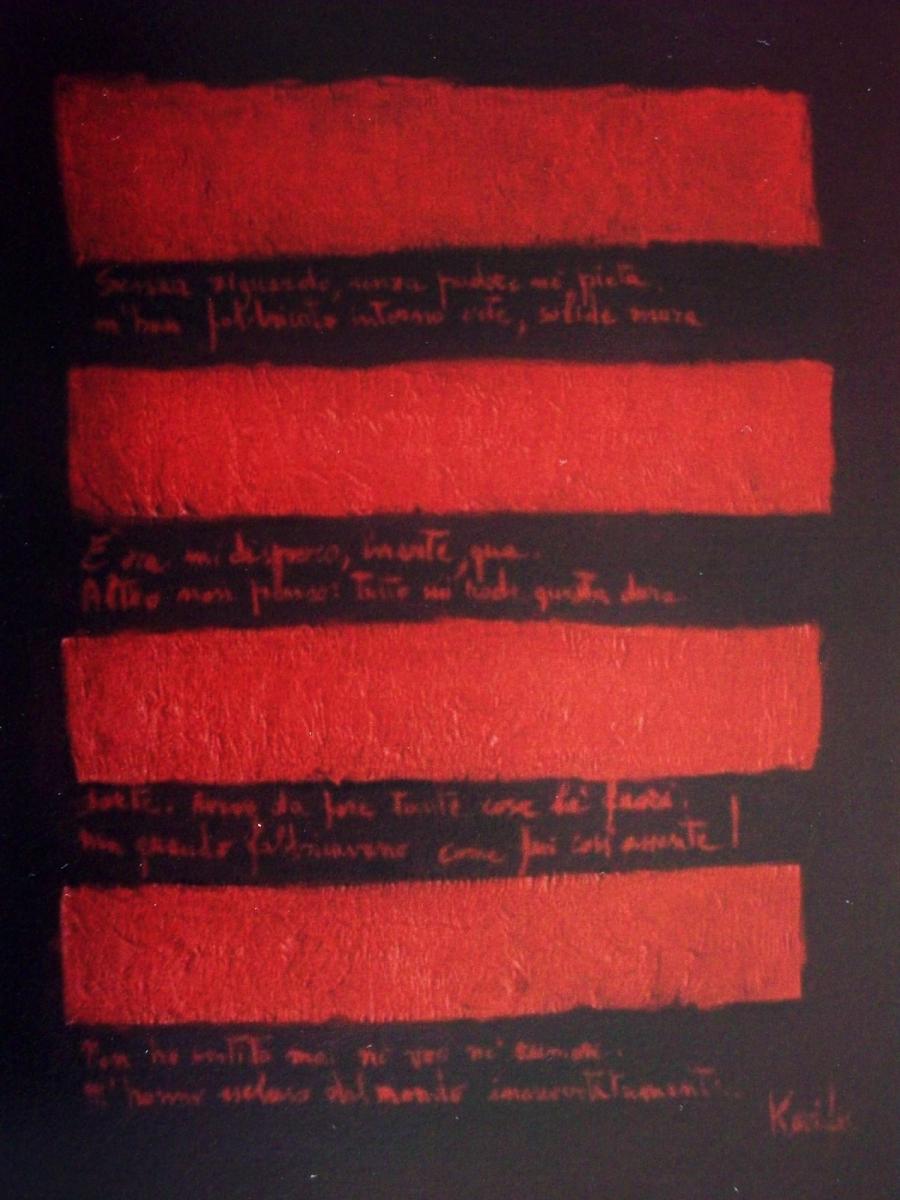 Senza riguardo, senza pudore né pietà,
m'han fabbricato intorno erte, solide mura
E ora mi dispero, inerte, qua.
Altro non penso: tutto mi rode questa dura
sorte. Avevo da fare tante cose là fuori.
Ma quando fabbricavano come fui così assente!
Non ho sentito mai né voci né rumori.
M'hanno escluso dal mondo inavvertitamente.